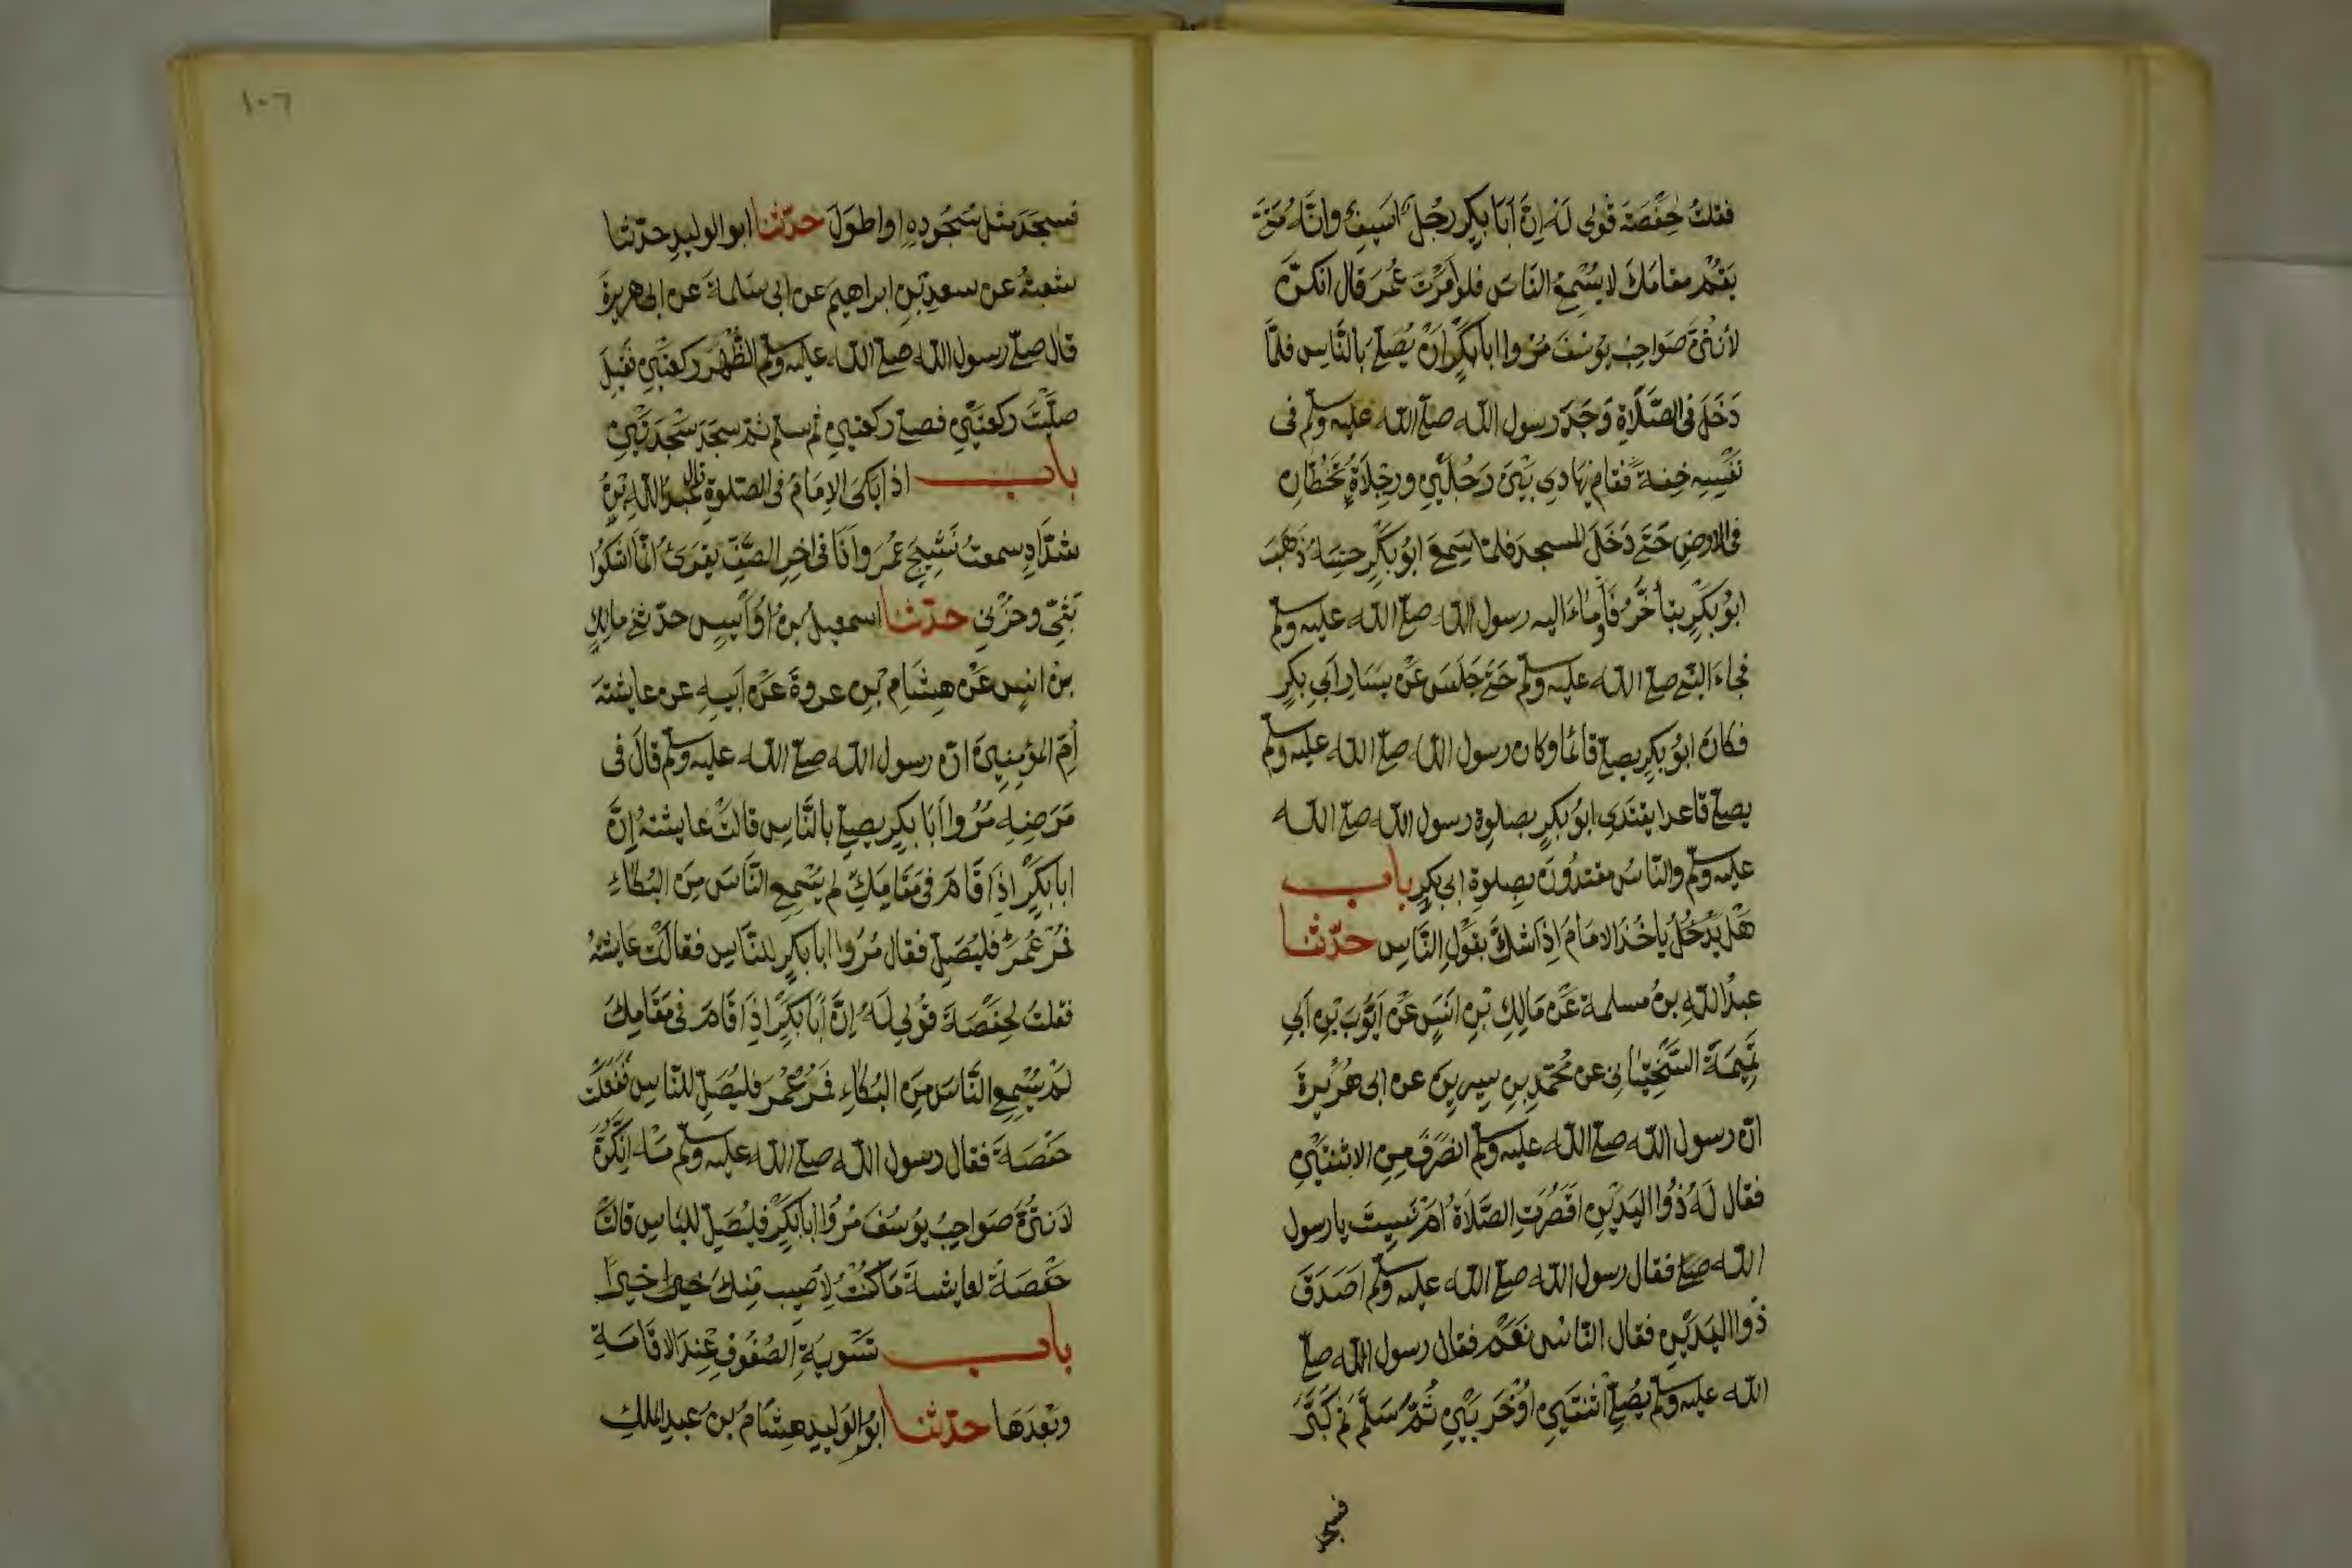 فقلت لحفصة قولى له إنّ أبا بكر رجل اسيف وانّه متى
يقم مقامك لا يسمع الناس فلو امرت عمر قال انكنّ
لأنتنّ صواحب يوسف مروا ابا بكر ان يصلّى بالنّاس فلمّا
دخل فى الصّلاة وجد رسول الله صلى الله عليه وسلم فى
نفسه خفة فقام يهادى بين رجلين ورجلاه تخطّان
فى الارض حتى دخل المسجد فلمّا سمع ابو بكر حسّه ذهب
ابو بكر يتأخّر فأوماء اليه رسول الله صلى الله عليه وسلم
فجاء النبى صلى الله عليه وسلم حتى جلس عن يسار ابي بكر
فكان ابو بكر يصلى قائما وكان رسول الله صلى الله عليه وسلم
يصلى قاعدا يقتدى ابو بكر بصلوة رسول الله صلى الله
عليه وسلم والنّاس مقتدون بصلوة ابى بكر باب
هل يدخل ياخذ الامام اذا شكّ بقول النّاس حدّثنا
عبد الله بن مسلمة عن مالك بن انس عن ايّوب بن ابي
تميمة السّختيانى عن محمّد بن سيرين عن ابى هريرة
انّ رسول الله صلى الله عليه وسلم انصرف من الاثنتين
فقال له ذوا اليدين اقصرت الصّلاة ام نسيت يا رسول
الله صلى فقال رسول الله صلى الله عليه وسلم اصدق
ذوا اليدين فقال النّاس نعم فقال رسول الله صلى
الله عليه وسلم يصلى اثنتين اوخريين ثمّ سلّم ثم كبّر
فسجد
١٠٦
فسجد مثل سجوده او اطول حدّثنا ابو الوليد حدّثنا
شعبة عن سعد بن ابراهيم عن ابى سلمة عن ابى هريرة
قال صلّى رسول الله صلى الله عليه وسلم الظّهر ركعتين فقيل
صلّيت ركعتين فصلى ركعتين ثم سلم ثم سجد سجدتين
باب اذا بكى الإمام فى الصلوة قال عبد الله بن
شدّاد سمعت نشيج عمر وانا فى اخر الصّفّ يقرئ انّما اشكوا
بثّى وحزني حدّثنا اسمعيل بن اؤيس حدّثني مالك
بن انس عن هشام بن عروة عن ابيه عن عايشة
امّ المؤمنين انّ رسول الله صلى الله عليه وسلم قال فى
مرضه مروا أبا بكر يصلى بالنّاس قالت عايشة إنّ
ابا بكر اذا قام فى مقامك لم يسمع النّاس من البكاء
فمر عمر فليصلّ فقال مروا ابا بكر للنّاس فقالت عايشة
فقلت لحفصة قولي له إنّ أبا بكر اذا قام فى مقامك
لم يسمع النّاس من البكاء فمر عمر فليصلّ للنّاس ففعلت
حفصة فقال رسول الله صلى الله عليه وسلم مه انّكنّ
لانتنّ صواحب يوسف مروا ابا بكر فليصلّ للنّاس قالت
حفصة لعايشة ما كنت لأصيب منك خيرا خيرا
باب تسوية الصفوف عند الاقامة
وبعدها حدّثنا ابو الوليد هشام بن عبد الملك